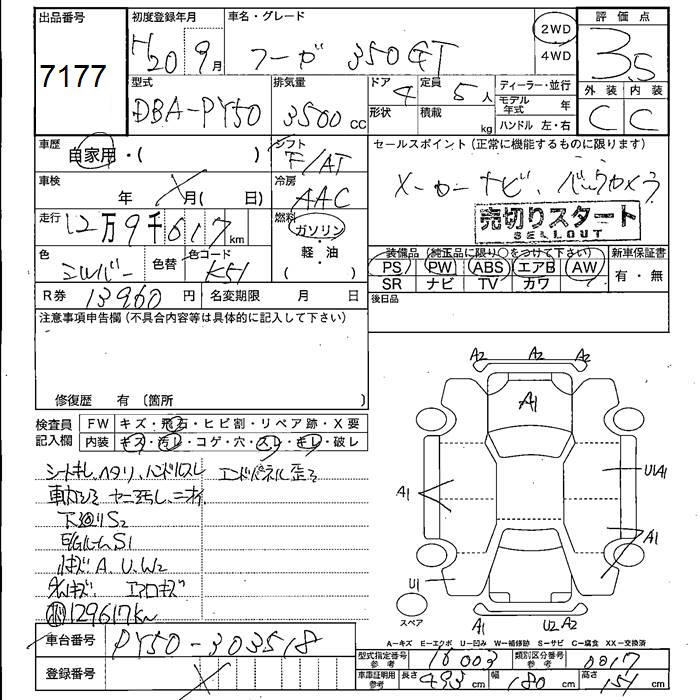 出品番号 初度登録年月 車名・グレード 評価点
7177 H20 9月 フーガ 350GT 2WD 4WD 3.5
型式 排気量 ドア 定員 ディーラー・並行 外装 内装
DBA-PY50 3500cc 4 5人 モデル年式 年 C C
形状 積載 kg ハンドル 左・右
車歴 シフト セールスポイント（正常に機能するものに限ります）
自家用・( ) F/AT
車検 冷房 メーカーナビ、バックカメラ
年 月( 日) AAC
走行 燃料 売切りスタート
12万9千617km ガソリン SELLOUT
軽・油
色 色替 色コード ( ) 装備品（純正品に限り○をつけて下さい） 新車保証書
シルバー K51 PS PW ABS エアB AW 有・無
R券 13960円 名変期限 月 日 SR ナビ TV カワ
後日品
注意事項申告欄（不具合内容等は具体的に記入して下さい）
修復歴 有〔箇所 〕
検査員記入欄 FW キズ・飛石・ヒビ割・リペア跡・X要
内装 キズ・汚レ・コゲ・穴・スレ・キレ・破レ
シートキレ、ヘタリ、ハンドルスレ エンドパネル歪ミ
車内シミ ヤニ汚レ、ニオイ
下廻りS2
E/GルームS1
A、U、W2
エアロキズ
129617km
A2 A2 A2
A1
A1 U1A1
A1
U1
スペア A1 U2 A2
A-キズ E-エクボ U-凹み W-補修跡 S-サビ C-腐食 XX-交換済
車台番号 PY50-303518 型式指定番号 参考 16003 類別区分番号 参考 0017
登録番号 車庫証明用 参考 長さ 493cm 幅 180cm 高さ 151cm